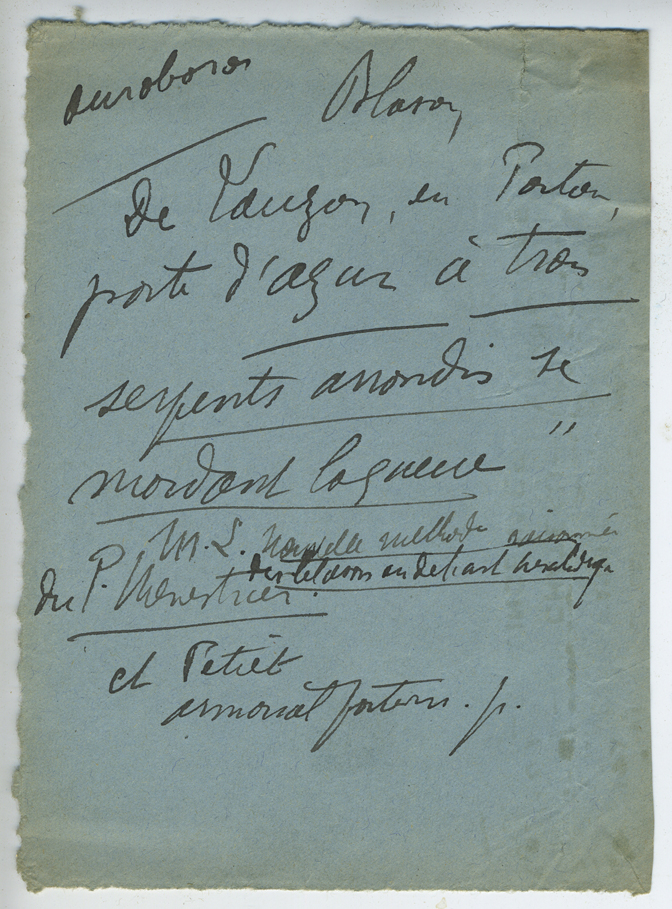 ouroboros
Blason
De Vauzon, en Poitou,
porte d'azur à trois
serpents arrondis se
mordant la queue "
M. L. Nouvelle methode raisonnée
du blason ou de l'art heraldique
du P. Menestrier.
et Petiet
armorial poitevin. p.